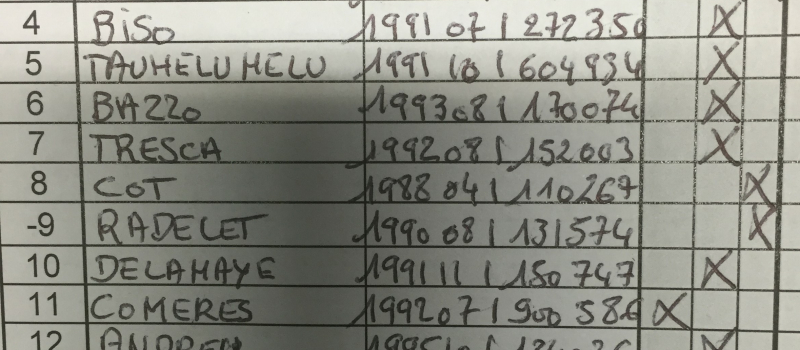 4 BISO 199107 1 272350 X
5 TAUHELUHELU 199110 1 604934 X
6 BAZZO 199308 1 170074 X
7 TRESCA 199208 1 152003 X
8 COT 198804 1 110267 X
-9 RADELET 199008 1 131574 X
10 DELAHAYE 199111 1 150747 X
11 COMERES 199207 1 900586 X
12